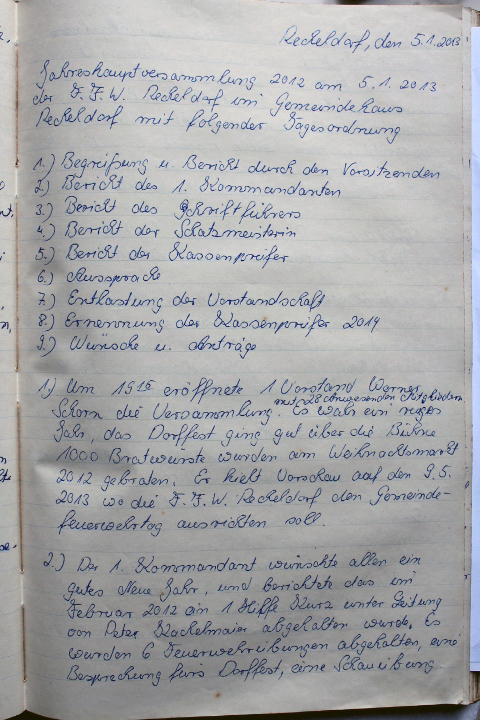 Reckeldorf, den 5.1.2013
Jahreshauptversammlung 2012 am 5.1.2013
der F.F.W. Reckeldorf im Gemeindehaus
Reckeldorf mit folgender Tagesordnung
1.) Begrüßung u. Bericht durch den Vorsitzenden
2) Bericht des 1. Kommandanten
3.) Bericht des Schriftführers
4.) Bericht der Schatzmeisterin
5.) Bericht der Kassenprüfer
6.) Aussprache
7.) Entlastung der Vorstandschaft
8.) Ernennung der Kassenprüfer 2014
9.) Wünsche u. Anträge
1.) Um 19 15 eröffnete 1 Vorstand Werner
mit 28 anwesenden Mitgliedern
Schorn die Versammlung. Es wahr ein ruhiges
Jahr, das Dorffest ging gut über die Bühne
1000 Bratwürste wurden am Weihnachtsmarkt
2012 gebraten. Er hielt Vorschau auf den 9.5.
2013 wo die F.F.W. Reckeldorf den Gemeinde-
feuerwehrtag ausrichten soll.
2.) Der 1. Kommandant wünschte allen ein
gutes Neue Jahr, und berichtete das im
Februar 2012 ein 1 Hilfe Kurz unter Leitung
von Peter Kachelmaier abgehalten wurde. Es
wurden 6 Feuerwehrübungen abgehalten, eine
Besprechung fürs Dorffest, eine Schauübung